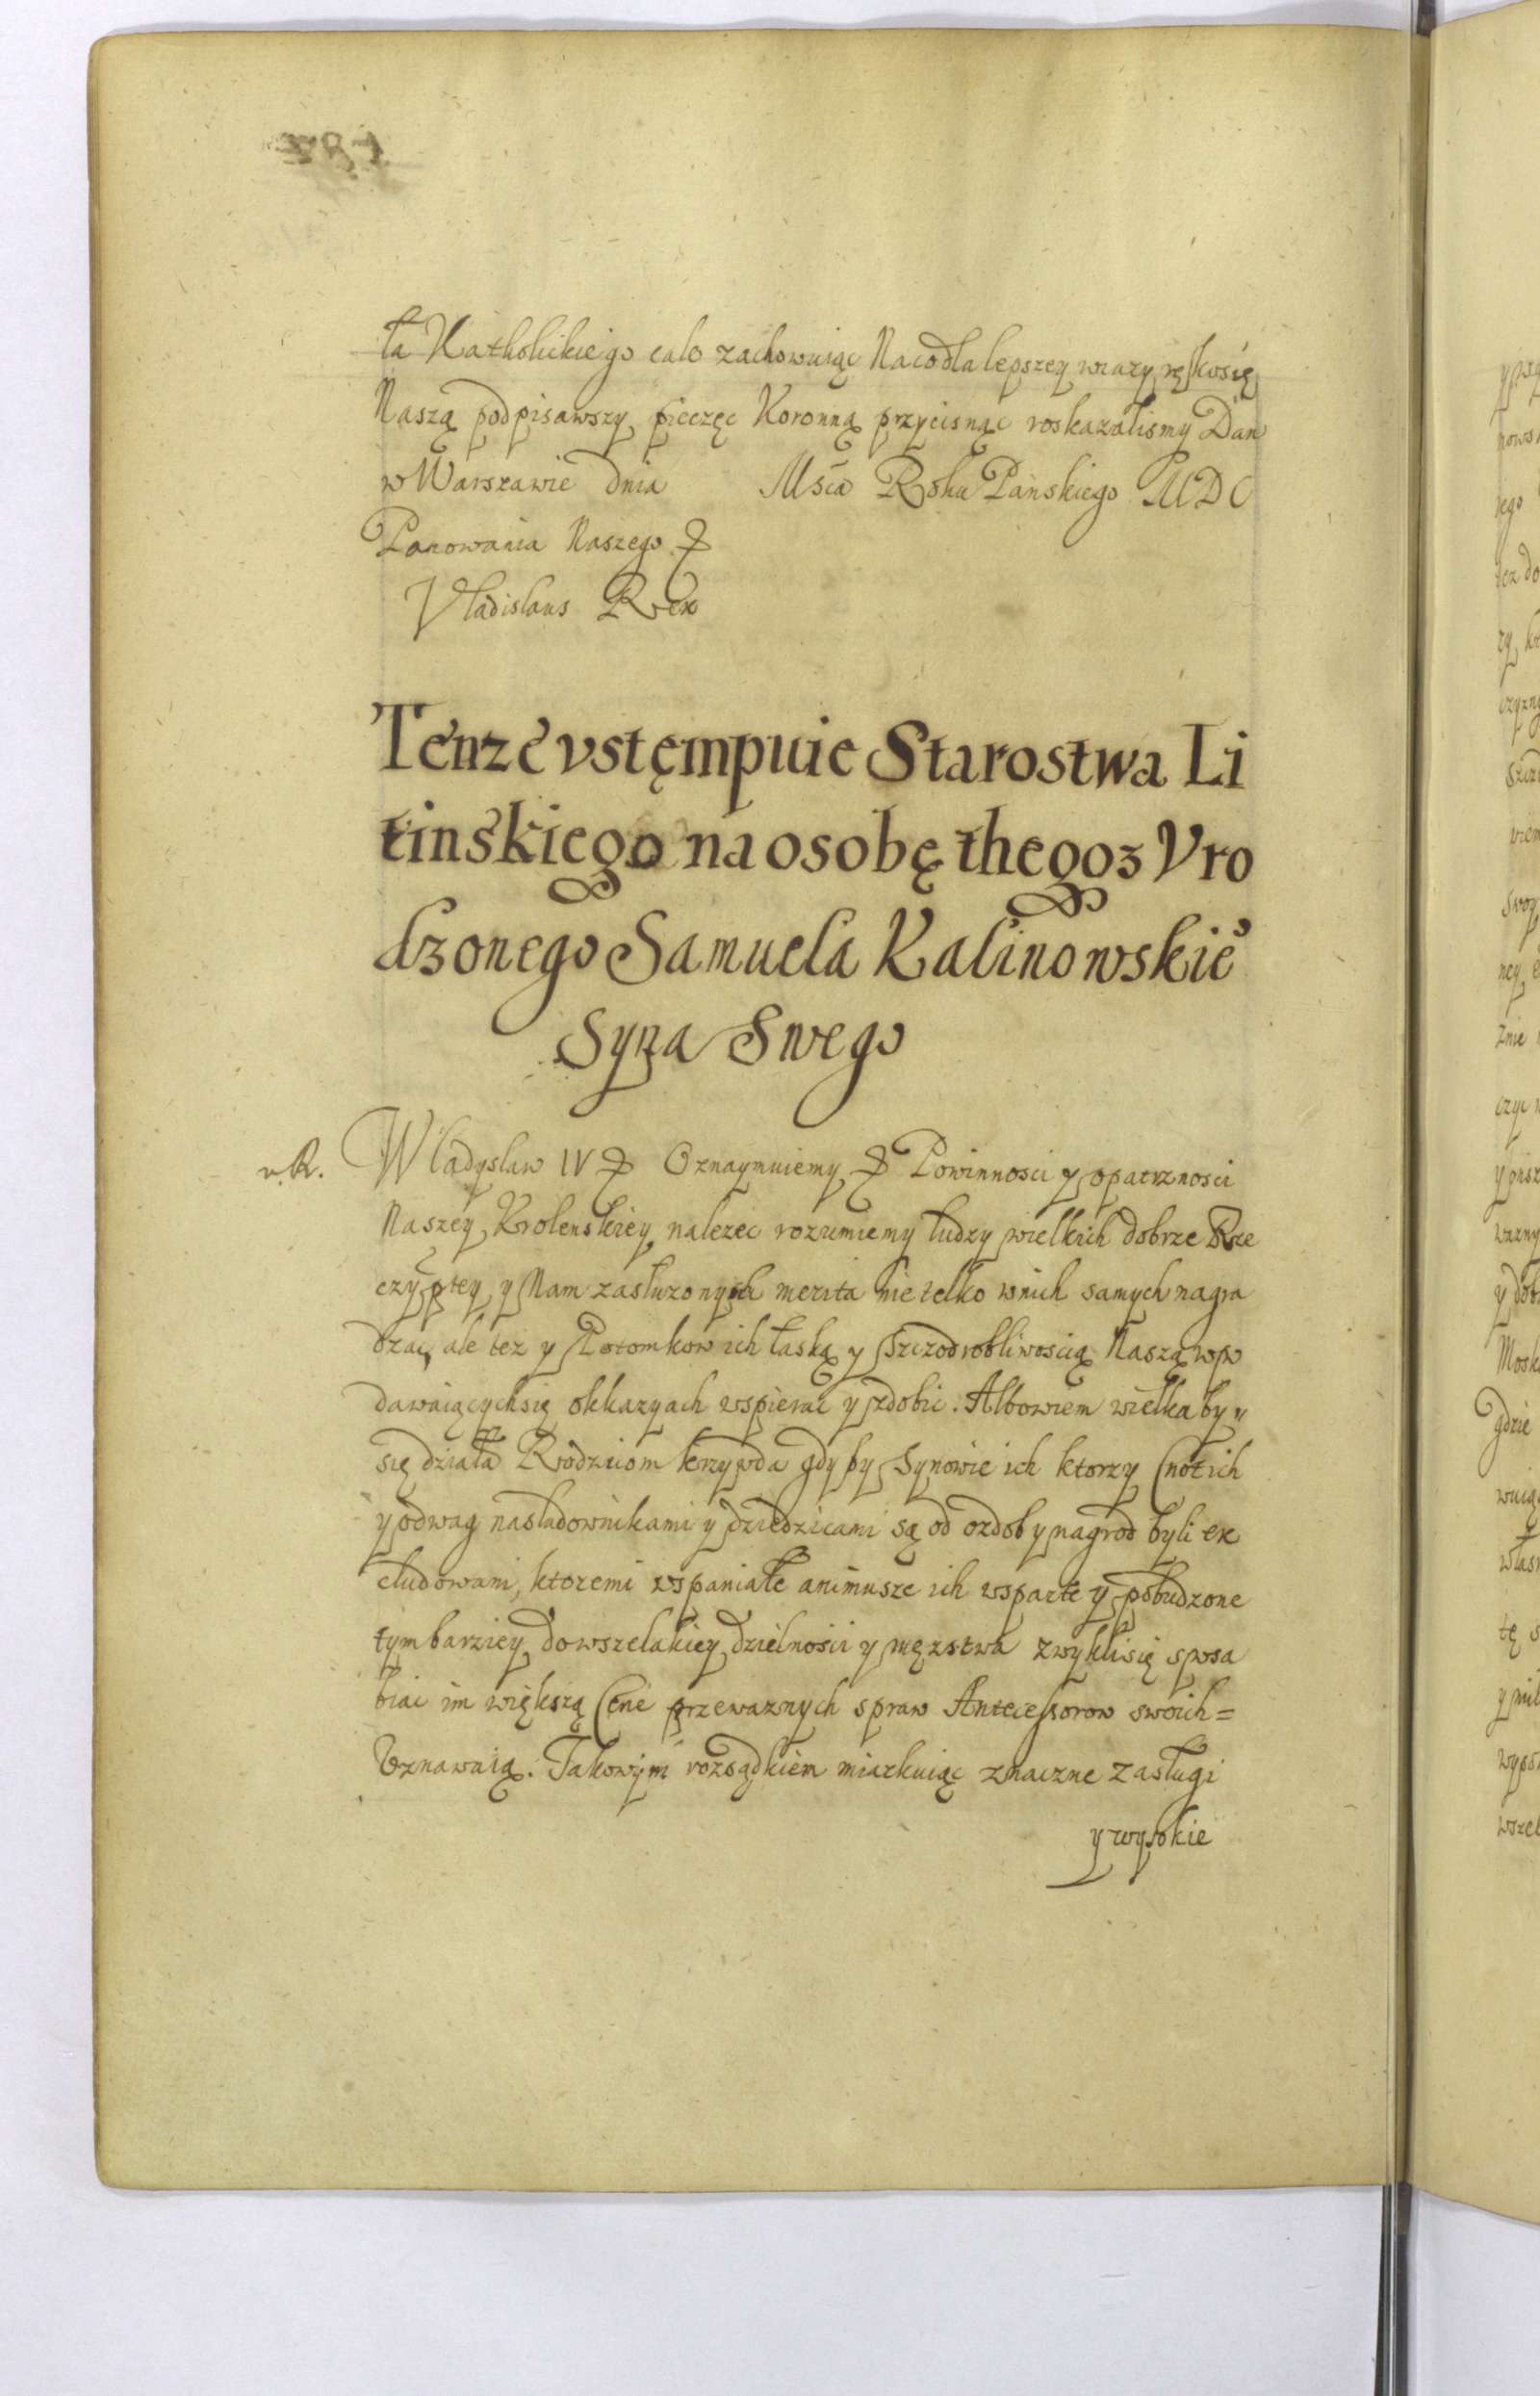 ła Katholickiego calo zachowuiąc Naco dla lepszey wiary ręką się
Naszą podpisawszy, pieczęc Koronną przycisnąc roskazalismy Dan
w Warszawie dnia Msca Roku Panskiego MDC
Panowania Naszego
Vladislaus Rex
Tenze vstęmpuie Starostwa Li
tinskiego na osobę thegoz Vro
dzonego Samuela Kalinowskie
Syna Swego
v. R. Wladyslaw IV Oznaymuiemy Powinnosci y opatrznosci
Naszey Krolewskiey nalezec rozumiemy ludzy wielkich dobrze Rze
czyptey y Nam zasłuzonych merita nie telko w nich samych nagra
dzac, ale tez y Potomkow ich łaską y szczodrobliwoscią Naszą w po
dawaiących się okkazyach wspierac y zdobic. Albowiem wielka by
się działa Rodzicom krzywda gdy by Synowie ich ktorzy Cnot ich
y odwag nasladownikami y dziedzicami są od ozdob y nagrod byli ex
cludowani, ktoremi wspaniałe animusze ich wsparte y pobudzone
tym barziey do wszelakiey dzielnosci y męzstwa zwykli się sposa
biac im większą Cene przewaznych spraw Antecessorow swoich =
Vznawaią. Takowym rozsądkiem miarkuiąc znaczne zasługi
y wysokie